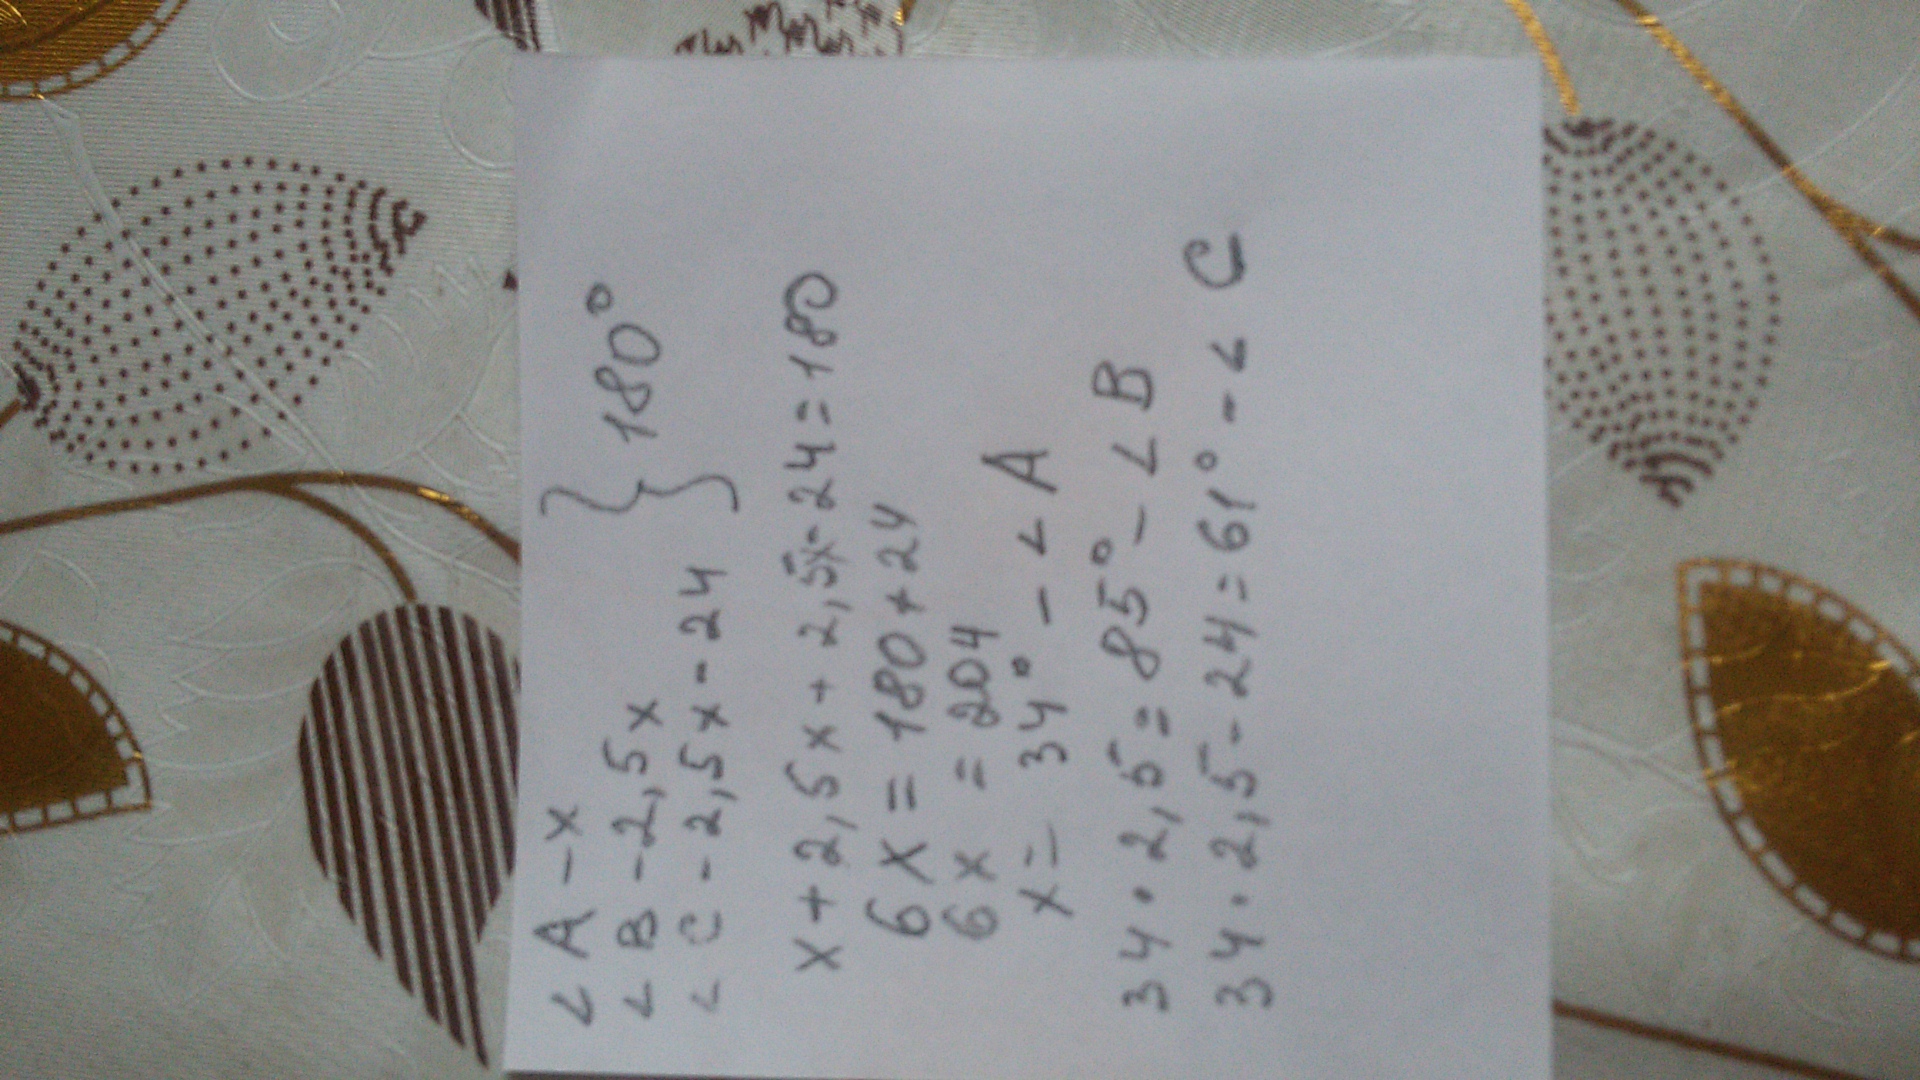 ∠ A - x
∠ B - 2,5x } 180°
∠ C - 2,5x - 24
x + 2,5x + 2,5x - 24 = 180
6x = 180 + 24
6x = 204
x = 34° - ∠ A
34 · 2,5 = 85° - ∠ B
34 · 2,5 - 24 = 61° - ∠ C